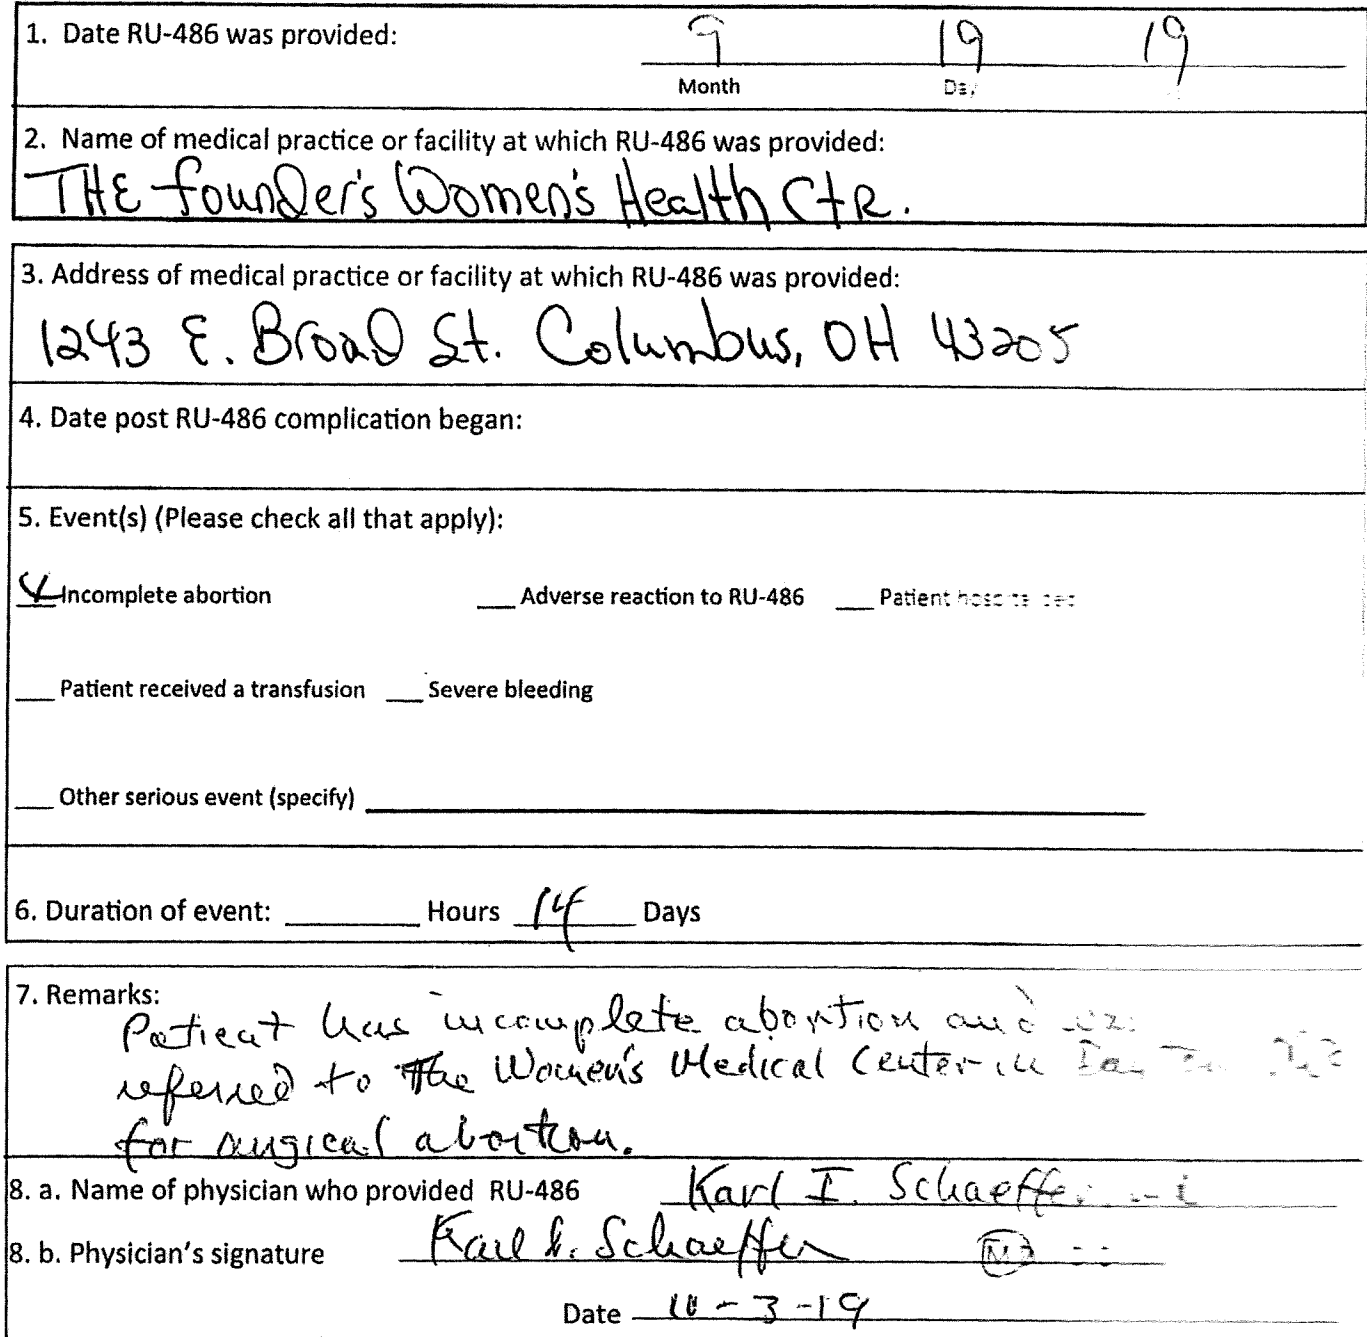 1. Date RU-486 was provided: 9 19 19
Month Day
2. Name of medical practice or facility at which RU-486 was provided:
THE founder's Women's Health CtR.
3. Address of medical practice or facility at which RU-486 was provided:
1243 E. Broad St. Columbus, OH 43205
4. Date post RU-486 complication began:
5. Event(s) (Please check all that apply):
Incomplete abortion ___ Adverse reaction to RU-486 ___ Patient hospitalized
___ Patient received a transfusion ___ Severe bleeding
___ Other serious event (specify) ___
6. Duration of event: ___ Hours 14 Days
7. Remarks:
Patient has incomplete abortion and
referred to the Women's Medical Center in
for surgical abortion.
8. a. Name of physician who provided RU-486 Karl I. Schaeffer
8. b. Physician's signature Karl I. Schaeffer MD
Date 10-3-19